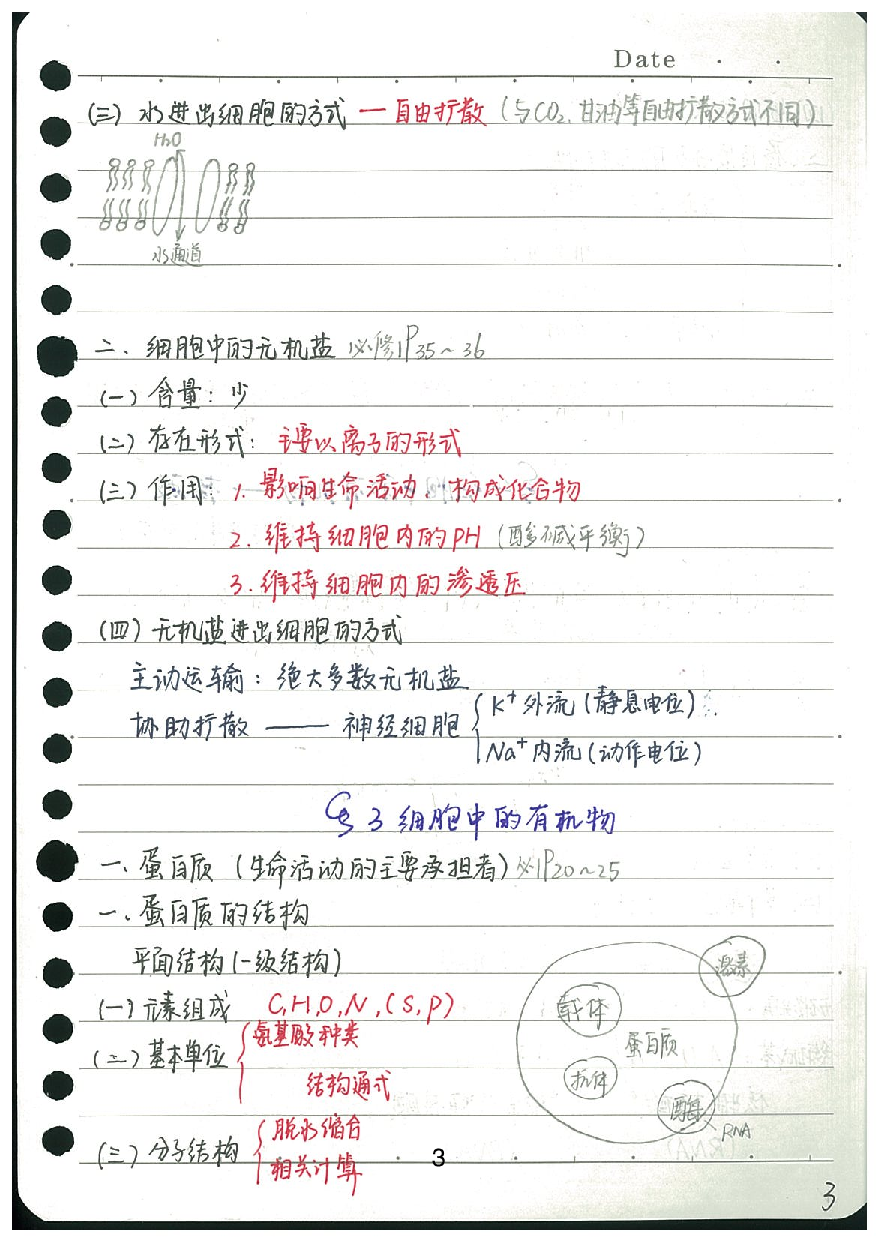 Date
(三) 水进出细胞的方式 — 自由扩散 (与CO₂、甘油等自由扩散方式不同)
H₂O
水通道
二、细胞中的无机盐 必修1P35~36
(一) 含量: 少
(二) 存在形式: 主要以离子的形式
(三) 作用: 1. 影响生命活动、构成化合物
2. 维持细胞内的PH (酸碱平衡)
3. 维持细胞内的渗透压
(四) 无机盐进出细胞的方式
主动运输: 绝大多数无机盐
协助扩散 —— 神经细胞 { K⁺外流 (静息电位)
Na⁺内流 (动作电位)
§3 细胞中的有机物
一、蛋白质 (生命活动的主要承担者) 必1P20~25
一、蛋白质的结构
平面结构 (一级结构)
(一) 元素组成 C,H,O,N,(S,P)
(二) 基本单位 { 氨基酸种类
结构通式
(三) 分子结构 { 脱水缩合
相关计算
激素
蛋白质
抗体
酶
RNA
3
3